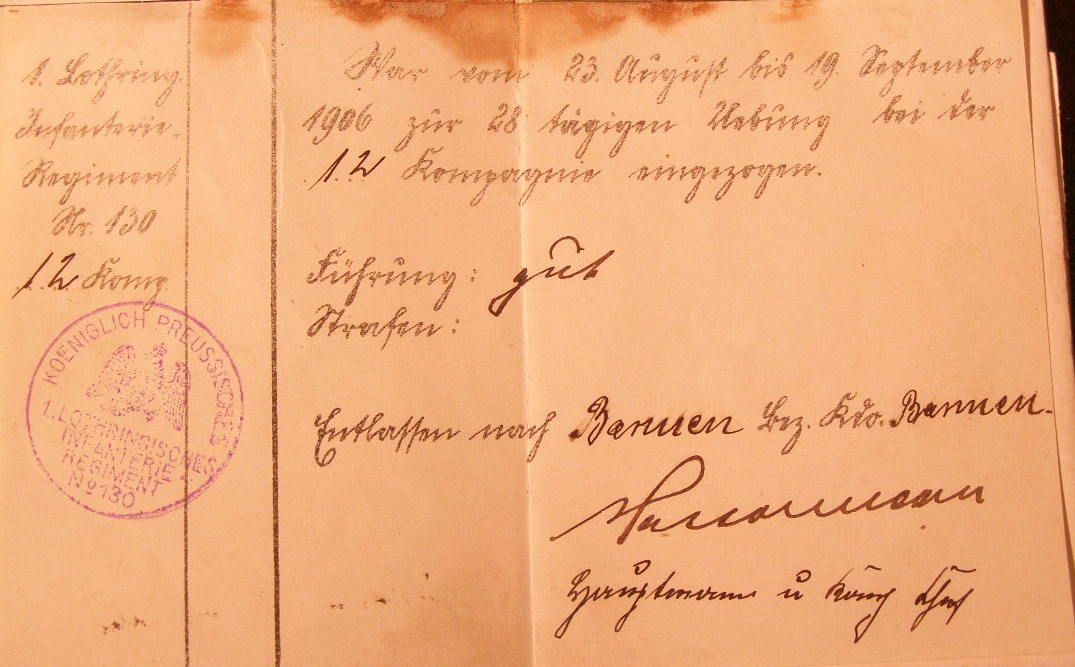 1. Lothring.
Infanterie-
Regiment
Nr. 130
12 Komp.
KOENIGLICH PREUSSISCHES
1. LOTHRINGISCHES
INFANTERIE
REGIMENT
No 130
War vom 23. August bis 19. September
1906 zur 28 tägigen Uebung bei der
12 Kompagnie eingezogen.
Führung: gut
Strafen:
Entlassen nach Barmen Bez. Kdo. Barmen.
Hauptmann u Komp Chef